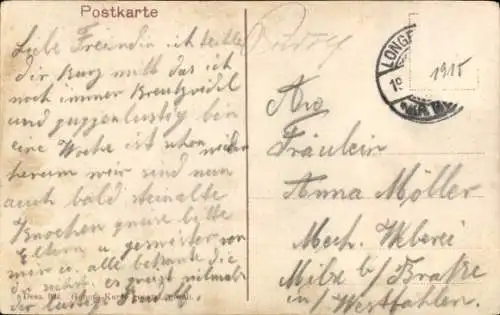 Postkarte
Liebe Freindin ich teille
dir kurz mitt das ich
noch immer Kreutzfidel
und puppenlustig bin
eine Woche ist schon wieder
herum wir sind nun
auch bald steinalte
Knochen bitte
Eltern u. geswister von
mir u. alle bekante die
es grüzt vielmahls
der lustige Rudolf.
Rudolf
LONGE
1915
An
Fräulein
Anna Möller
Mech. Weberei
Milse b/ Brake
in/ Westfahlen.